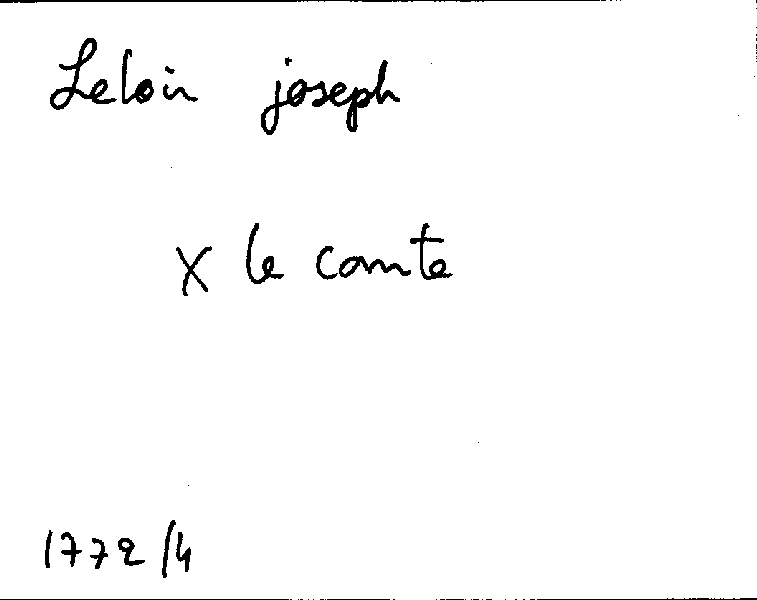 Leloir joseph
X le comte
1772/4